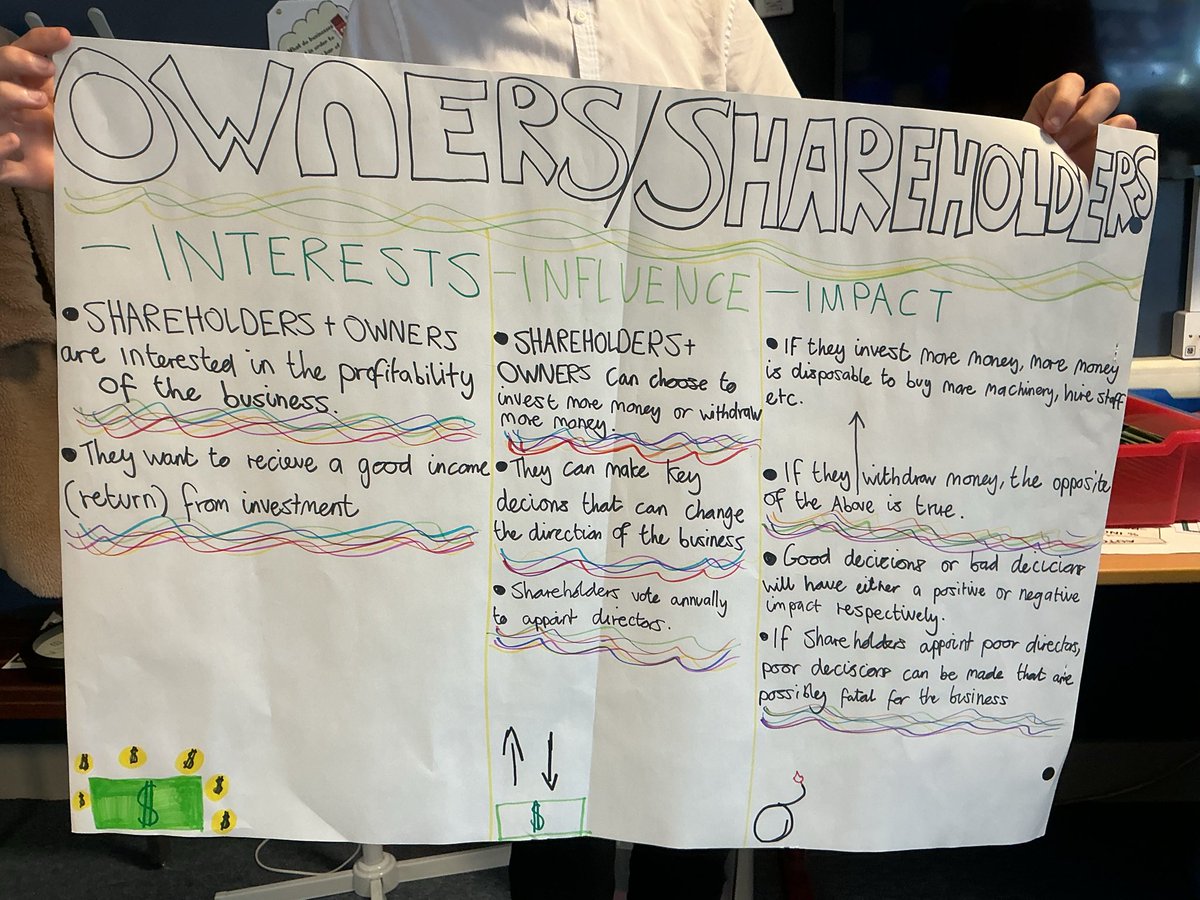 What do businesses
OWNERS/SHAREHOLDERS.
- INTERESTS
• SHAREHOLDERS + OWNERS
are interested in the profitability
of the business.
• They want to recieve a good income
(return) from investment
$
- INFLUENCE
• SHAREHOLDERS +
OWNERS can choose to
invest more money or withdraw
more money.
• They can make key
decions that can change
the direction of the business
• Shareholders vote annually
to appoint directors.
$
- IMPACT
• IF they invest more money, more money
is disposable to buy more machinery, hire staff
etc.
• If they withdraw money, the opposite
of the Above is true.
• Good decicions or bad decicions
will have either a positive or negative
impact respectively.
• If Shareholders appoint poor directors,
poor decisions can be made that are
possibly fatal for the business